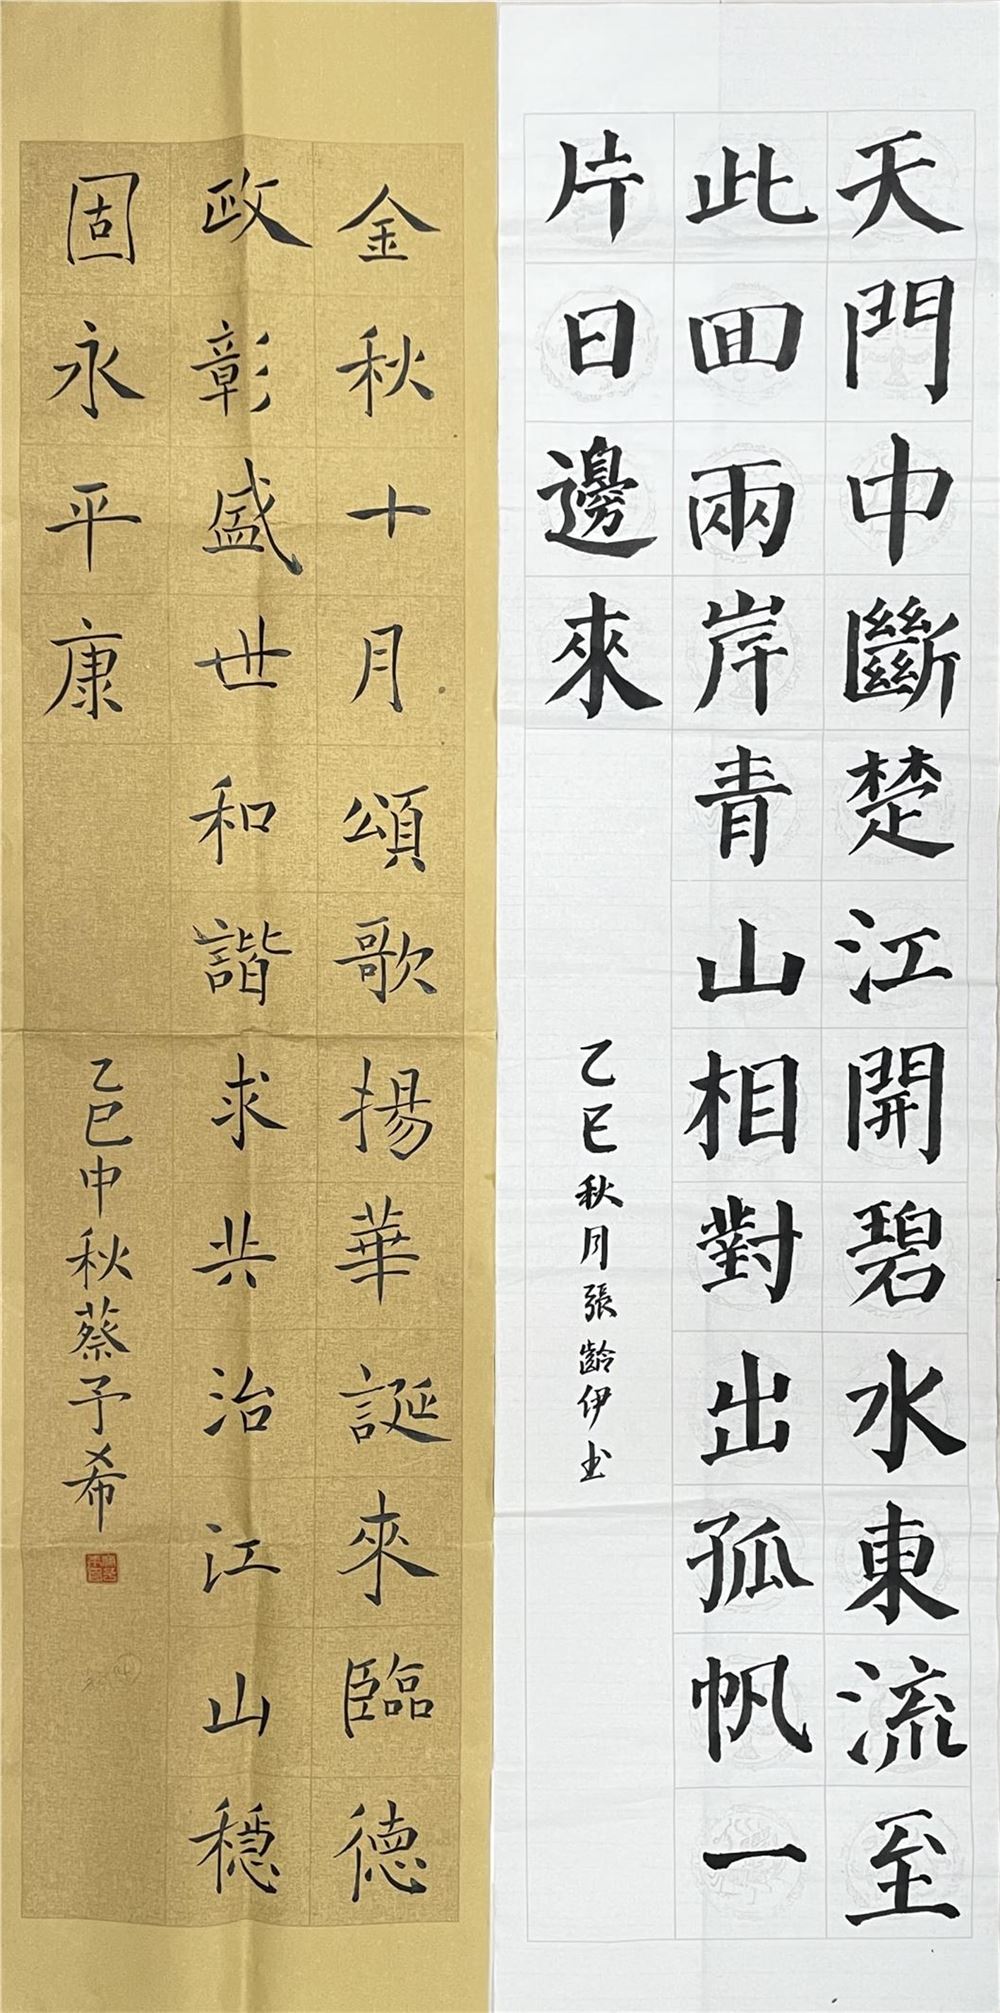 天門中斷楚江開碧水東流至
此回兩岸青山相對出孤帆一
片日邊來
乙巳秋月張齡伊书
金秋十月頌歌揚華誕來臨德
政彰盛世和諧求共治江山穩
固永平康
乙巳中秋蔡予希